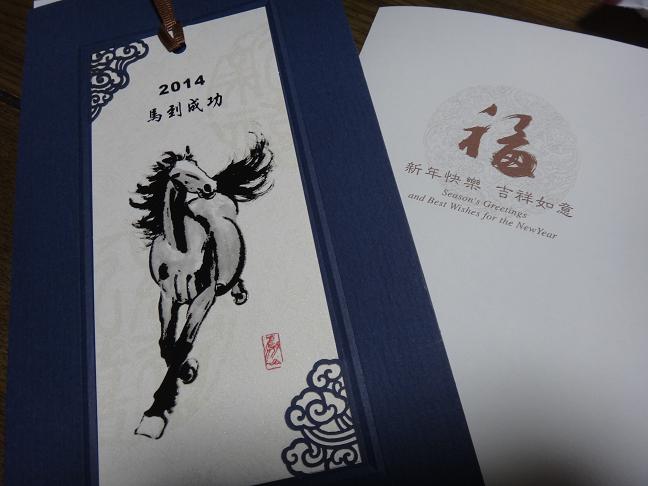 2014
馬到成功
福
新年快樂 吉祥如意
Season's Greetings
and Best Wishes for the NewYear